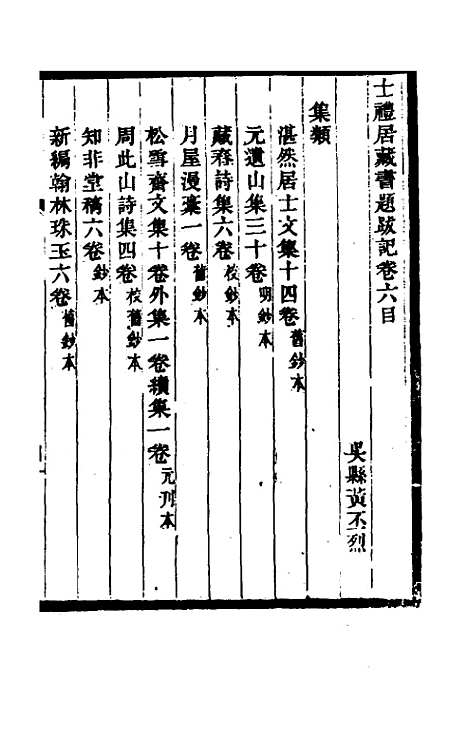 士禮居藏書題跋記卷六目
吳縣黃丕烈
集類
湛然居士文集十四卷舊鈔本
元遺山集三十卷明鈔本
藏春詩集六卷校鈔本
月屋漫藁一卷舊鈔本
松雪齋文集十卷外集一卷續集一卷元刊本
周此山詩集四卷校舊鈔本
知非堂稿六卷鈔本
新編翰林珠玉六卷舊鈔本